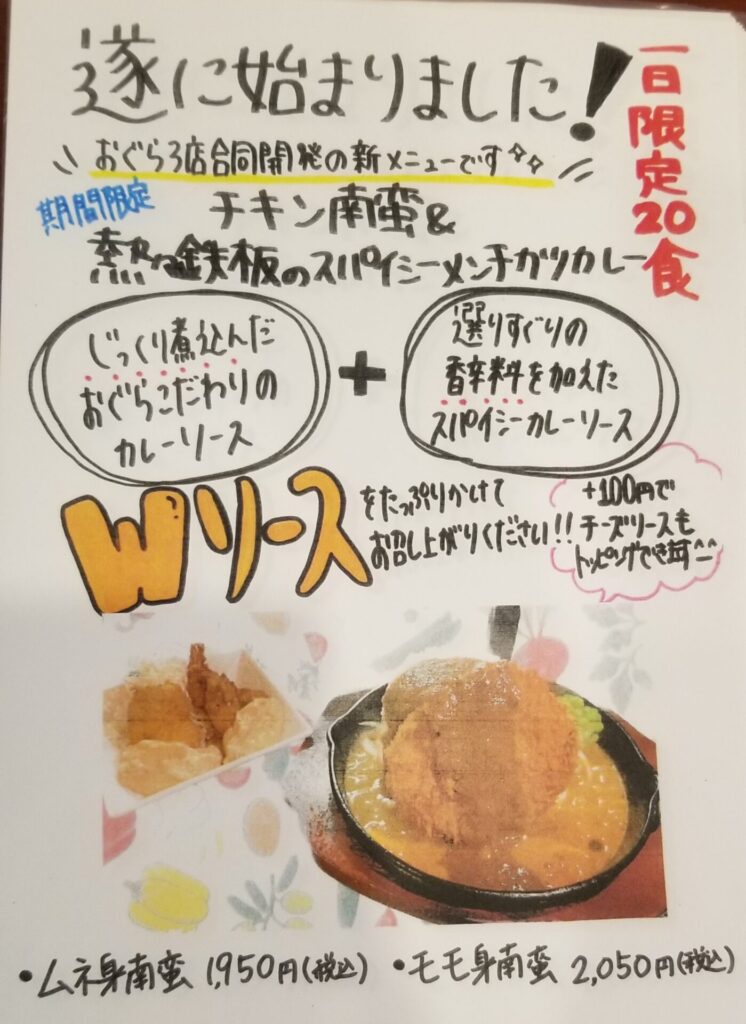 遂に始まりました!
一日限定20食
おぐら3店合同開発の新メニューです
期間限定
チキン南蛮&
熱々鉄板のスパイシーメンチカツカレー
じっくり煮込んだ
おぐらこだわりの
カレーソース
+
選りすぐりの
香辛料を加えた
スパイシーカレーソース
Wソース
をたっぷりかけて
お召し上がりください!!
+100円で
チーズソースも
トッピングできます^^
・ムネ身南蛮 1,950円(税込)
・モモ身南蛮 2,050円(税込)